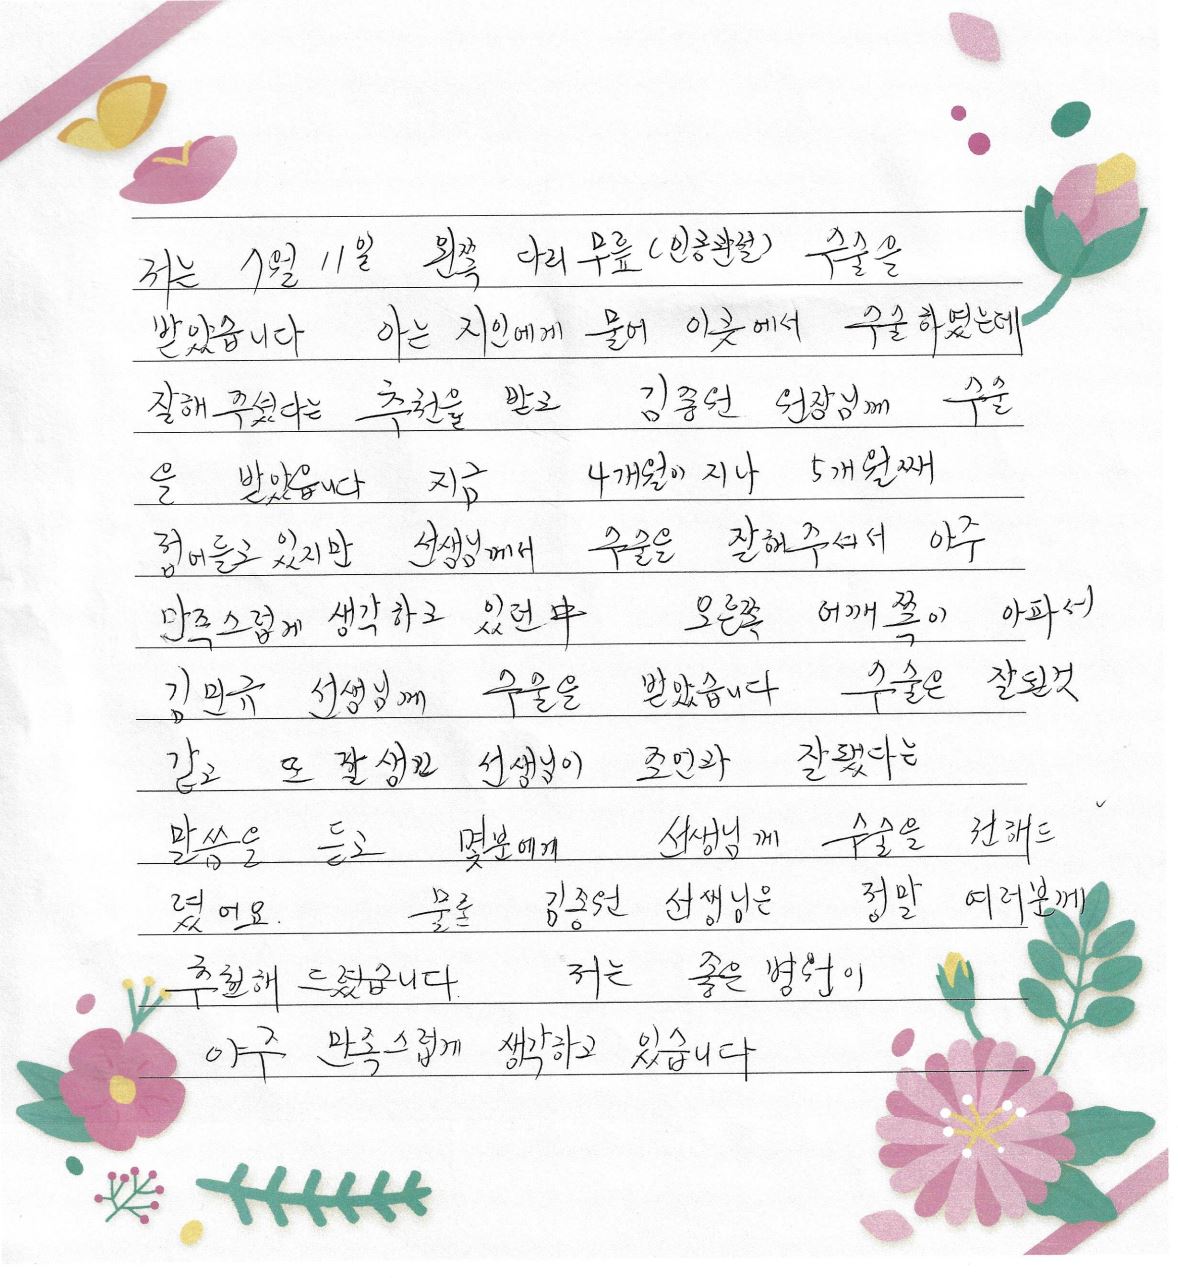 저는 7월 11일 왼쪽 다리 무릎(인공관절) 수술을
받았습니다 아는 지인에게 물어 이곳에서 수술하였는데
잘해주셨다는 추천을 받고 김종원 원장님께 수술
을 받았읍니다 지금 4개월이 지나 5개월째
접어들고 있지만 선생님께서 수술을 잘해주셔서 아주
만족스럽게 생각하고 있던中 오른쪽 어깨쪽이 아파서
김민규 선생님께 수술을 받았습니다 수술은 잘된것
같고 또 잘생긴 선생님이 잘됐다는
말씀을 듣고 몇분에게 선생님께 수술을 권해드
렸어요. 물론 김종원 선생님은 정말 여러분께
추천해 드렸습니다. 저는 좋은 병원이
아주 만족스럽게 생각하고 있습니다